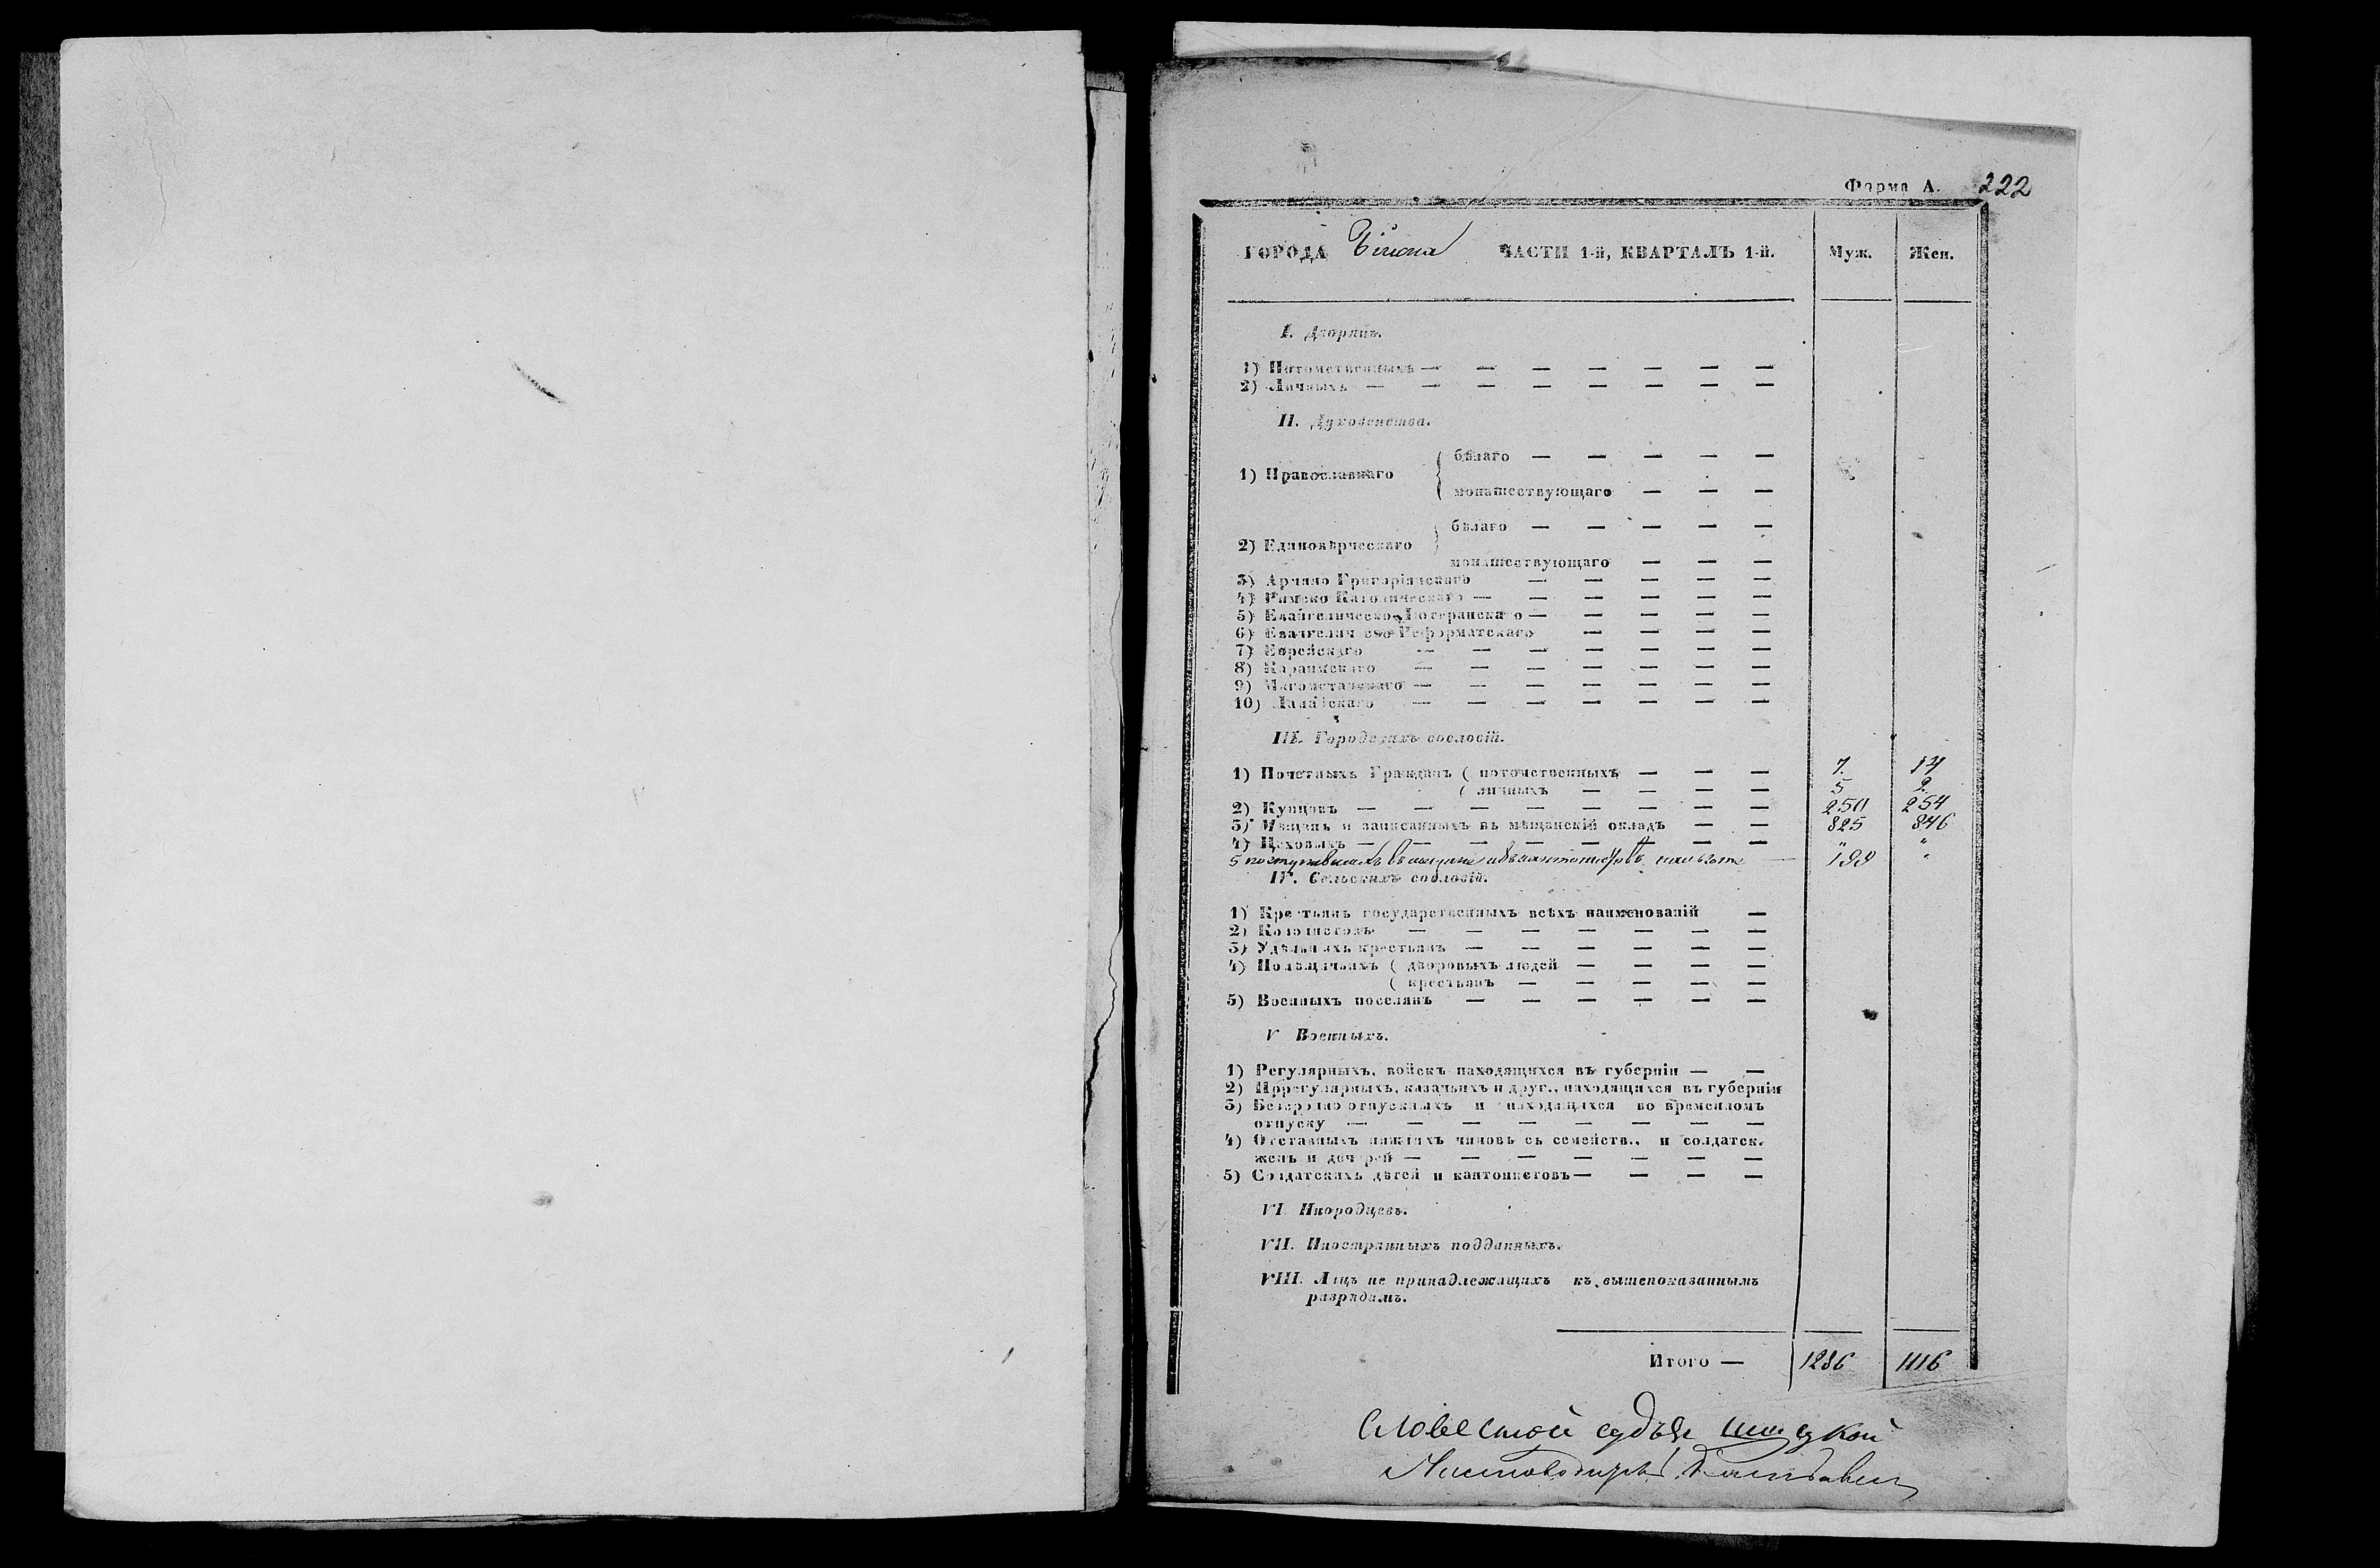 Форма А. 222
ГОРОДА ЧАСТИ 1-й, КВАРТАЛЪ 1-й. Муж. Жен.
I. Дворянъ.
1) Потомственныхъ — — — — — — —
2) Личныхъ — — — — — — — —
II. Духовенства.
бѣлаго — — — — —
1) Православнаго
монашествующаго — — —
бѣлаго — — — — —
2) Единовѣрческаго
монашествующаго — — —
3) Армяно Григоріянскаго — — — — —
4) Римско Католическаго — — — — — —
5) Евангелическо-Лютеранскаго — — — — —
6) Евангелическо-Реформатскаго — — — —
7) Еврейскаго — — — — — — —
8) Караимскаго — — — — — — —
9) Магометанскаго — — — — — — —
10) Ламайскаго — — — — — — —
III. Городскихъ сословій.
1) Почетныхъ Гражданъ ( потомственныхъ — — — 7. 14
( личныхъ — — — — 5 2
2) Купцовъ — — — — — — — — 250 254
3) Мѣщанъ и записанныхъ въ мѣщанскій окладъ — — 825 846
4) Цеховыхъ — — — — — — — — " "
5 — 199 "
IV. Сельскихъ сословій.
1) Крестьянъ государственныхъ всѣхъ наименованій —
2) Колонистовъ — — — — — — —
3) Удѣльныхъ крестьянъ — — — — — —
4) Помѣщичьихъ ( дворовыхъ людей — — — —
( крестьянъ — — — — —
5) Военныхъ поселянъ — — — — — —
V Военныхъ.
1) Регулярныхъ, войскъ находящихся въ губерніи — —
2) Иррегулярныхъ, казачьихъ и друг., находящихся въ губерніи
3) Безсрочно отпускныхъ и находящихся во временномъ
отпуску — — — — — — — —
4) Отставныхъ нижнихъ чиновъ съ семейств., и солдатск.
женъ и дочерей — — — — — — —
5) Солдатскихъ дѣтей и кантонистовъ — — — —
VI Инородцевъ.
VII. Иностранныхъ подданныхъ.
VIII. Лицъ не принадлежащихъ къ вышепоказаннымъ
разрядамъ.
Итого — 1286 1116
Словесной судья